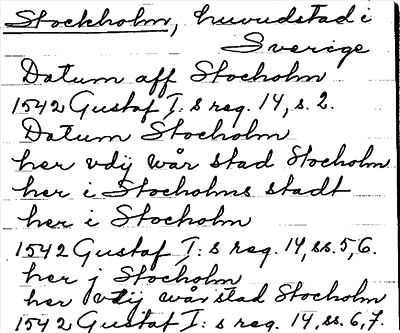 Stockholm, huvudstad i
Sverige
Datum aff Stocholm
1542 Gustaf I: s reg. 14, s. 2.
Datum Stocholm
her vdij wår stad Stocholm
her i Stocholms stadt
her i Stocholm
1542 Gustaf I: s reg. 14, ss. 5, 6.
her j Stocholm
her vtij wår stad Stocholm
1542 Gustaf I: s reg. 14, ss. 6, 7.